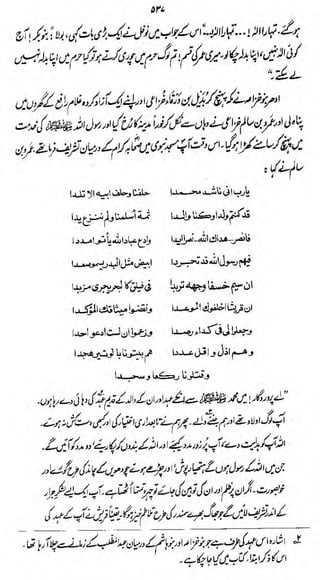 ۵۳۷
ہو گئے، تمہارا الٰہ! ... تمہارا الٰہ! ..." اس کے جواب میں نوفل نے ایک بڑی بات کہی، بولا: "بنو بکر! آج
کوئی الٰہ نہیں، اپنا بدلہ چکا لو۔ میری عمر کی قسم! تم لوگ حرم میں چوری کرتے ہو تو کیا حرم میں اپنا بدلہ نہیں
لے سکتے۔"
ادھر بنو خزاعہ نے مکہ پہنچ کر بُدَیل بن ورقاء خزاعی اور اپنے ایک آزاد کردہ غلام رافع کے گھروں میں
پناہ لی اور عمرو بن سالم خزاعی نے وہاں سے نکل کر فوراً مدینہ کا رُخ کیا اور رسول اللہ ﷺ کی خدمت
میں پہنچ کر سامنے کھڑا ہو گیا۔ اس وقت آپ مسجد نبوی میں صحابہ کرام کے درمیان تشریف فرما تھے۔ عمرو بن
سالم نے کہا:
يارب انى ناشد محمدا حلفنا وحلف ابيه الاتلدا
قد كنتم ولدا وكنا والدا ثمة أسلمنا ولم ننزع يدا
فانصر هداك الله نصرا ايدا وادع عباد الله يأتوا مددا
فيهم رسول الله قد تجردا ابيض مثل البدر يسمو صعدا
ان سيم خسفا وجهه تربدا فى فيلق كالبحر يجرى مزبدا
ان قريشا اخلفوك الموعدا ونقضوا ميثاقك المؤكدا
وجعلوا لى فى كداء رصدا وزعموا ان لست ادعو احدا
وهم اذل و اقل عددا هم بيتونا بالوتير هجدا
وقتلونا ركعا وسجدا
"اے پروردگار! میں محمد ﷺ سے ان کے عہد اور ان کے والد کے قدیم عہد کی دہائی دے رہا ہوں۔
آپ لوگ اولاد تھے اور ہم جننے والے۔ پھر ہم نے تابعداری اختیار کی اور کبھی دست کش نہ ہوئے۔
اللہ آپ کو ہدایت دے، آپ پُر زور مدد کیجئے اور اللہ کے بندوں کو پکاریئے، وہ مدد کو آئیں گے۔
جن میں اللہ کے رسول ہوں گے ہتھیار پوش، اور چڑھے ہوئے چودھویں کے چاند کی طرح گورے اور
خوبصورت۔ اگر ان پر ظلم اور ان کی توہین کی جائے تو چہرہ تمتما اُٹھتا ہے۔ آپ ایک ایسے لشکر جرار
کے اندر تشریف لائیں گے جو جھاگ بھرے سمندر کی طرح تلاطم خیز ہو گا۔ یقیناً قریش نے آپ کے عہد کی
اشارہ اس عہد کی طرف ہے جو بنو خزاعہ اور بنو ہاشم کے درمیان عبدالمطلب کے زمانے سے چلا آ رہا تھا۔
اس کا ذکر ابتداء کتاب میں کیا جا چکا ہے۔